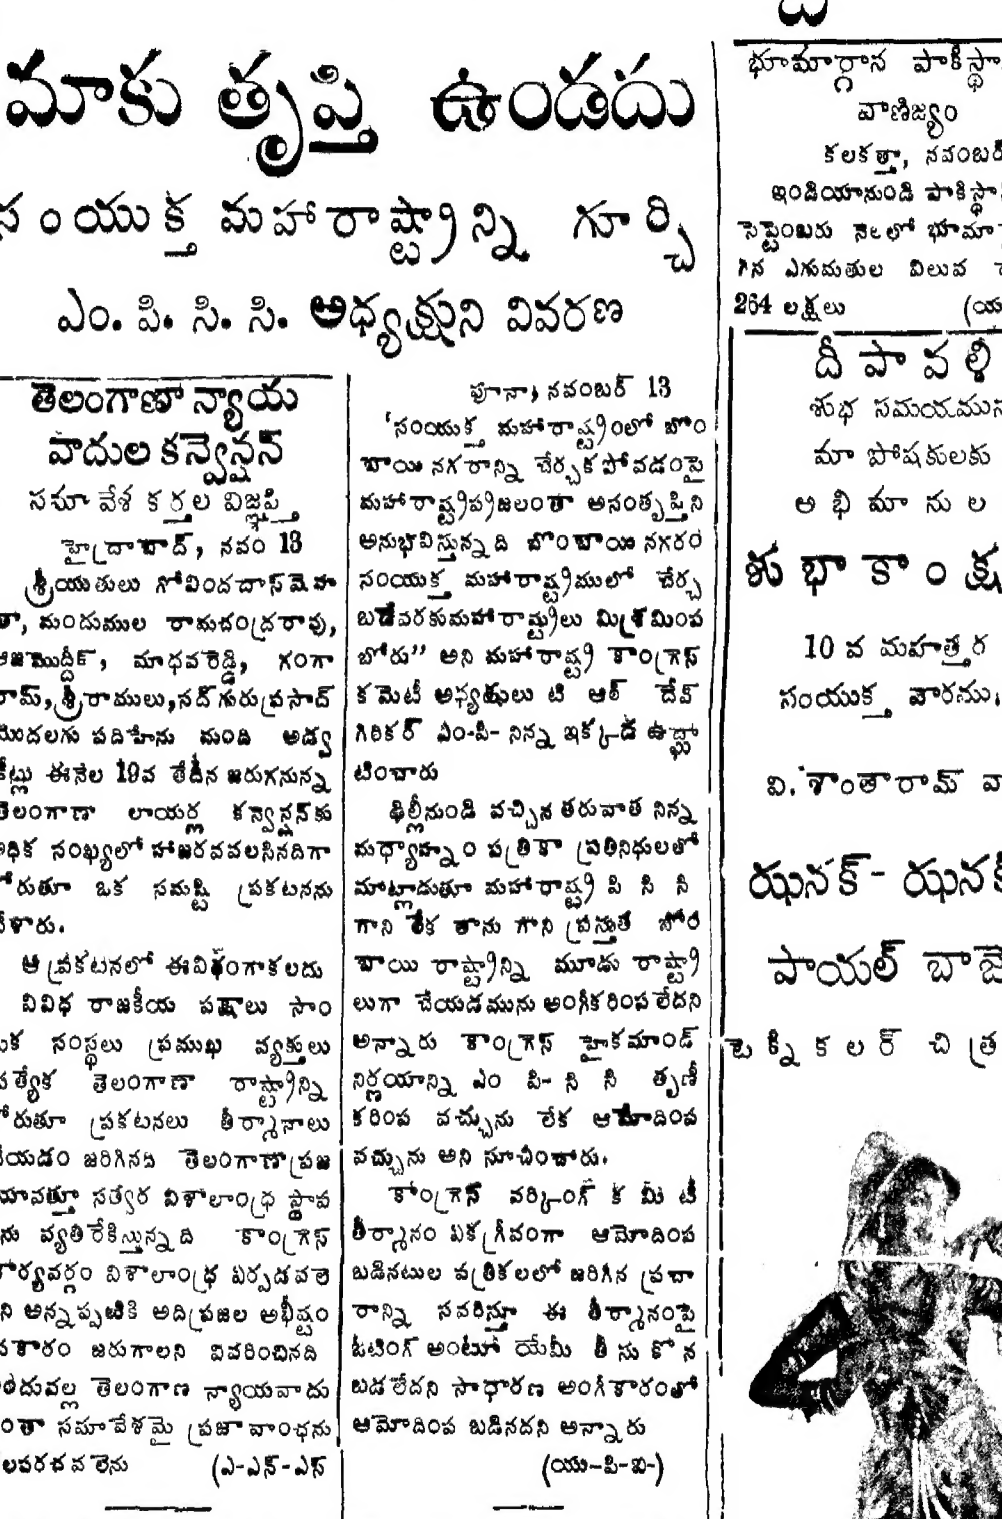 మాకు తృప్తి ఉండదు
సంయుక్త మహారాష్ట్రాన్ని గూర్చి
ఎం. పి. సి. సి. అధ్యక్షుని వివరణ
తెలంగాణా న్యాయ
వాదుల కన్వెన్షన్
సమావేశ కర్తల విజ్ఞప్తి
హైద్రాబాద్, నవం 13
శ్రీయుతులు గోవిందదాస్ మెహ
తా, మందుముల రామచంద్రరావు,
మాధవరెడ్డి, గంగా
రామ్, శ్రీరాములు, సద్గురుప్రసాద్
మొదలగు పదిహేను మంది అడ్వ
కేట్లు ఈనెల 19వ తేదీన జరుగనున్న
తెలంగాణా లాయర్ల కన్వెన్షన్‌కు
అధిక సంఖ్యలో హాజరవవలసినదిగా
కోరుతూ ఒక సమష్టి ప్రకటనను
చేశారు.
ఆ ప్రకటనలో ఈవిధంగాకలదు
వివిధ రాజకీయ పక్షాలు సాం
ఘిక సంస్థలు ప్రముఖ వ్యక్తులు
ప్రత్యేక తెలంగాణా రాష్ట్రాన్ని
కోరుతూ ప్రకటనలు తీర్మానాలు
చేయడం జరిగినది తెలంగాణాప్రజ
యావత్తూ సత్వర విశాలాంధ్ర స్థాప
నను వ్యతిరేకిస్తున్నది కాంగ్రెస్
కార్యవర్గం విశాలాంధ్ర ఏర్పడవలె
నని అన్నప్పటికి అదిప్రజల అభీష్టం
ప్రకారం జరుగాలని వివరించినది
అందువల్ల తెలంగాణ న్యాయవాదు
లంతా సమావేశమై ప్రజావాంఛను
బలపరచవలెను (ఎ-ఎన్-ఎస్
పూనా, నవంబర్ 13
'సంయుక్త మహారాష్ట్రంలో బొం
బాయి నగరాన్ని చేర్చక పోవడంపై
మహారాష్ట్రప్రజలంతా అసంతృప్తిని
అనుభవిస్తున్నది బొంబాయి నగరం
సంయుక్త మహారాష్ట్రములో చేర్చ
బడేవరకుమహారాష్ట్రులు విశ్రమింప
బోరు" అని మహారాష్ట్ర కాంగ్రెస్
కమెటీ అధ్యక్షులు టి ఆర్ దేవ్
గిరికర్ ఎం-పి- నిన్న ఇక్కడ ఉద్ఘా
టించారు
ఢిల్లీనుండి వచ్చిన తరువాత నిన్న
మధ్యాహ్నం పత్రికా ప్రతినిధులతో
మాట్లాడుతూ మహారాష్ట్ర పి సి సి
గాని లేక తాను గాని ప్రస్తుత బోం
బాయి రాష్ట్రాన్ని మూడు రాష్ట్రా
లుగా చేయడమును అంగీకరింపలేదని
అన్నారు కాంగ్రెస్ హైకమాండ్
నిర్ణయాన్ని ఎం పి- సి సి తృణీ
కరింప వచ్చును లేక ఆమోదింప
వచ్చును అని సూచించారు.
కాంగ్రెస్ వర్కింగ్ కమిటీ
తీర్మానం ఏకగ్రీవంగా ఆమోదింప
బడినటుల పత్రికలలో జరిగిన ప్రచా
రాన్ని సవరిస్తూ ఈ తీర్మానంపై
ఓటింగ్ అంటూ యేమీ తీసుకొన
బడలేదని సాధారణ అంగీకారంతో
ఆమోదింప బడినదని అన్నారు
(యు-పి-ఐ-)
భూమార్గాన పాకిస్థా
వాణిజ్యం
కలకత్తా, నవంబర్
ఇండియానుండి పాకిస్థా
సెప్టెంబరు నెలలో భూమా
గిన ఎగుమతుల విలువ
264 లక్షలు (యు
దీపావళి
శుభ సమయమున
మా పోషకులకు
అభిమానుల
శుభాకాంక్ష
10 వ మహత్తర
సంయుక్త వారము
వి. శాంతారామ్ వా
ఝనక్- ఝనక్
పాయల్ బాజె
టెక్నికలర్ చిత్ర